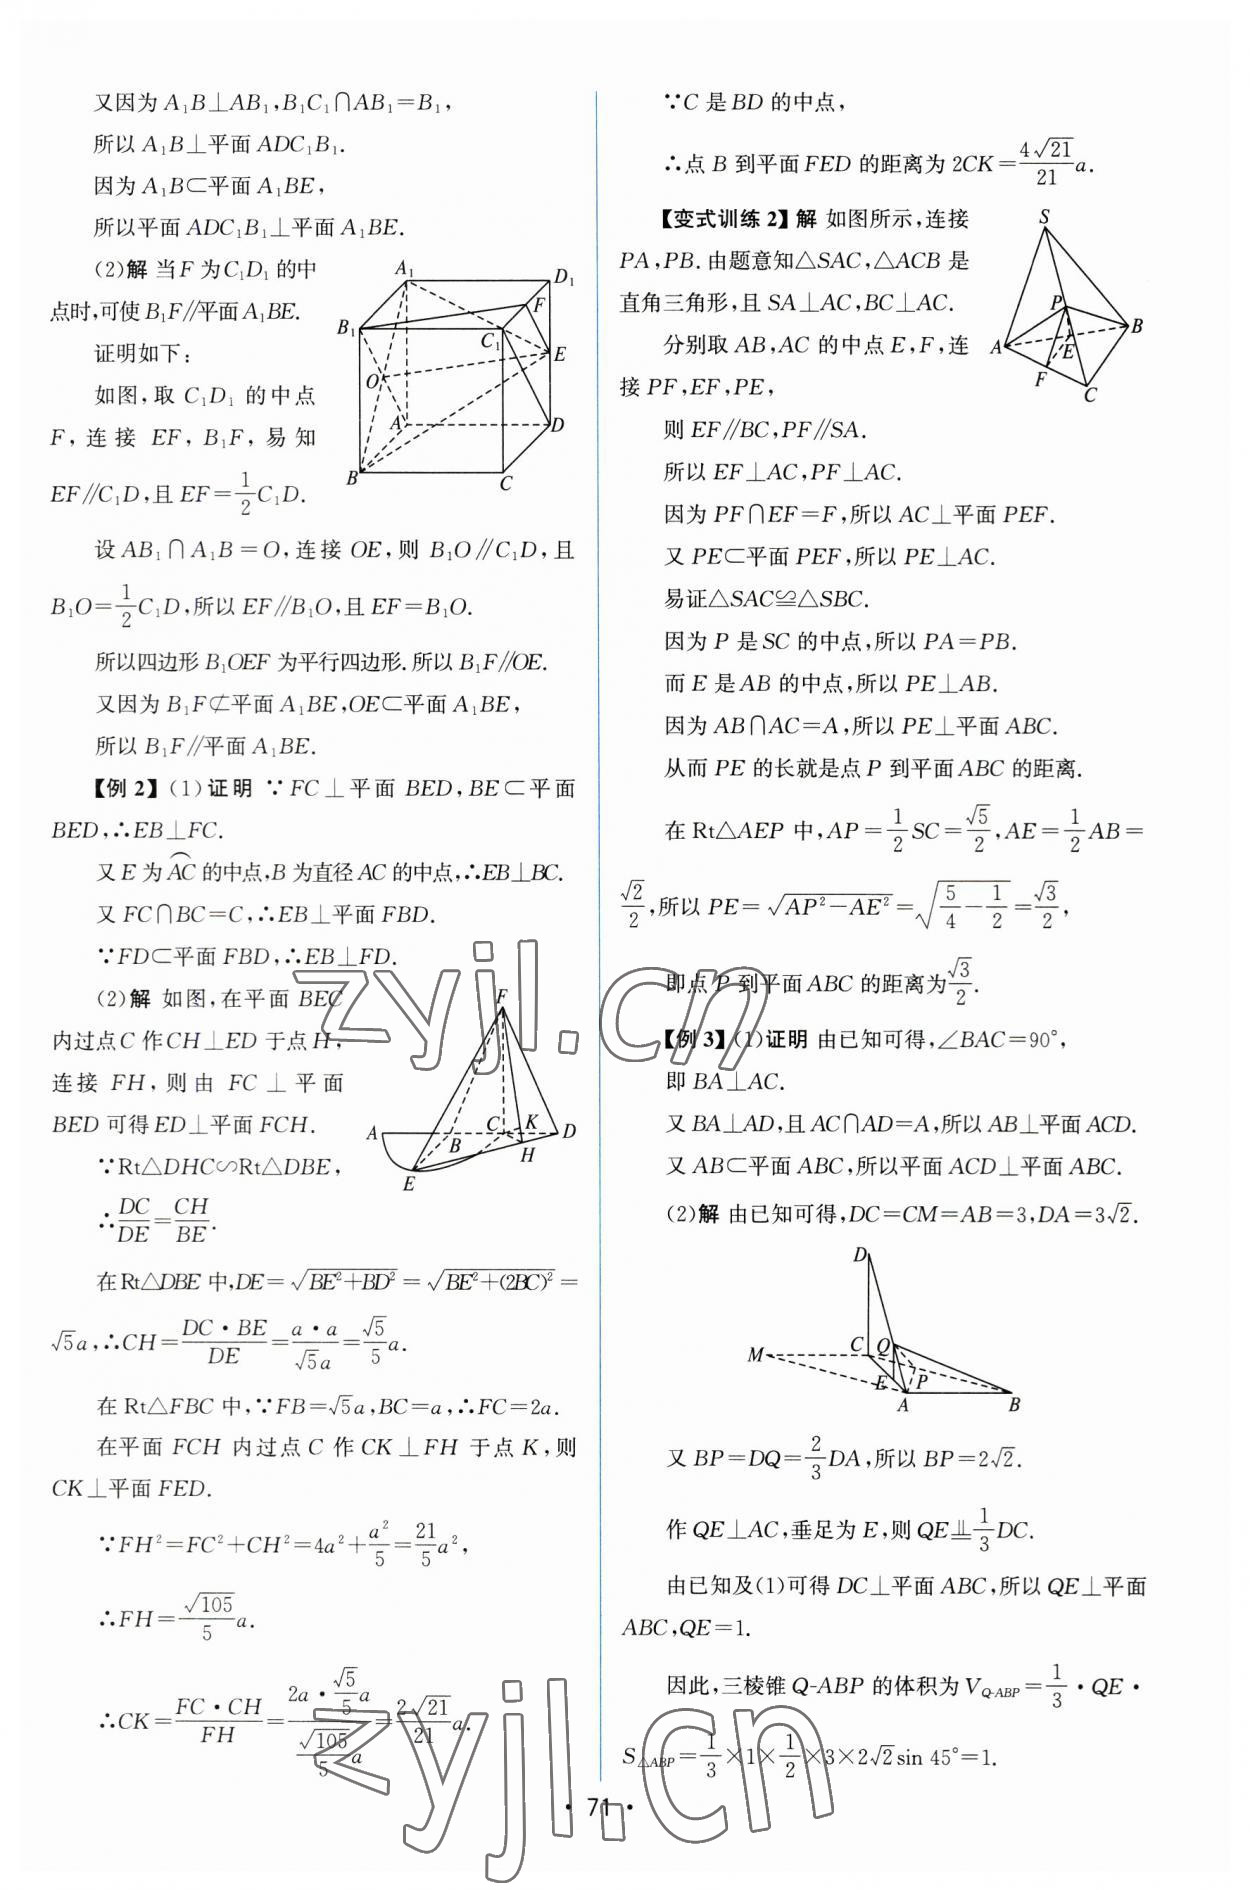 又因为 A₁B⊥AB₁,B₁C₁∩AB₁=B₁,
所以 A₁B⊥平面 ADC₁B₁.
因为 A₁B⊂平面 A₁BE,
所以平面 ADC₁B₁⊥平面 A₁BE.
(2)解 当 F 为 C₁D₁ 的中
点时,可使 B₁F∥平面 A₁BE.
证明如下:
如图,取 C₁D₁ 的中点
F,连接 EF,B₁F,易知
EF∥C₁D,且 EF=1/2 C₁D.
A₁ D₁ F B₁ C₁ E O A D B C
设 AB₁∩A₁B=O,连接 OE,则 B₁O∥C₁D,且
B₁O=1/2 C₁D,所以 EF∥B₁O,且 EF=B₁O.
所以四边形 B₁OEF 为平行四边形.所以 B₁F∥OE.
又因为 B₁F⊄平面 A₁BE,OE⊂平面 A₁BE,
所以 B₁F∥平面 A₁BE.
【例 2】(1)证明 ∵FC⊥平面 BED,BE⊂平面
BED,∴EB⊥FC.
又 E 为 A͡C 的中点,B 为直径 AC 的中点,∴EB⊥BC.
又 FC∩BC=C,∴EB⊥平面 FBD.
∵FD⊂平面 FBD,∴EB⊥FD.
(2)解 如图,在平面 BEC
内过点 C 作 CH⊥ED 于点 H,
连接 FH,则由 FC⊥平面
BED 可得 ED⊥平面 FCH.
∵Rt△DHC∽Rt△DBE,
∴DC/DE=CH/BE.
F A B C K D H E
在 Rt△DBE 中,DE=√(BE²+BD²)=√(BE²+(2BC)²)=
√5a,∴CH=(DC·BE)/DE=(a·a)/(√5a)=(√5/5)a.
在 Rt△FBC 中,∵FB=√5a,BC=a,∴FC=2a.
在平面 FCH 内过点 C 作 CK⊥FH 于点 K,则
CK⊥平面 FED.
∵FH²=FC²+CH²=4a²+a²/5=(21/5)a²,
∴FH=(√105/5)a.
∴CK=(FC·CH)/FH=(2a·(√5/5)a)/((√105/5)a)=(2√21/21)a.
∵C 是 BD 的中点,
∴点 B 到平面 FED 的距离为 2CK=(4√21/21)a.
【变式训练 2】解 如图所示,连接
PA,PB.由题意知△SAC,△ACB 是
直角三角形,且 SA⊥AC,BC⊥AC.
分别取 AB,AC 的中点 E,F,连
接 PF,EF,PE,
S P B A E F C
则 EF∥BC,PF∥SA.
所以 EF⊥AC,PF⊥AC.
因为 PF∩EF=F,所以 AC⊥平面 PEF.
又 PE⊂平面 PEF,所以 PE⊥AC.
易证△SAC≌△SBC.
因为 P 是 SC 的中点,所以 PA=PB.
而 E 是 AB 的中点,所以 PE⊥AB.
因为 AB∩AC=A,所以 PE⊥平面 ABC.
从而 PE 的长就是点 P 到平面 ABC 的距离.
在 Rt△AEP 中,AP=1/2 SC=√5/2,AE=1/2 AB=
√2/2,所以 PE=√(AP²-AE²)=√(5/4-1/2)=√3/2,
即点 P 到平面 ABC 的距离为√3/2.
【例 3】(1)证明 由已知可得,∠BAC=90°,
即 BA⊥AC.
又 BA⊥AD,且 AC∩AD=A,所以 AB⊥平面 ACD.
又 AB⊂平面 ABC,所以平面 ACD⊥平面 ABC.
(2)解 由已知可得,DC=CM=AB=3,DA=3√2.
D M C Q E P A B
又 BP=DQ=2/3 DA,所以 BP=2√2.
作 QE⊥AC,垂足为 E,则 QE⫫1/3 DC.
由已知及(1)可得 DC⊥平面 ABC,所以 QE⊥平面
ABC,QE=1.
因此,三棱锥 Q-ABP 的体积为 V_Q-ABP=1/3·QE·
S_△ABP=1/3×1×1/2×3×2√2 sin 45°=1.
·71·
zyjl.cn
zyjl.cn